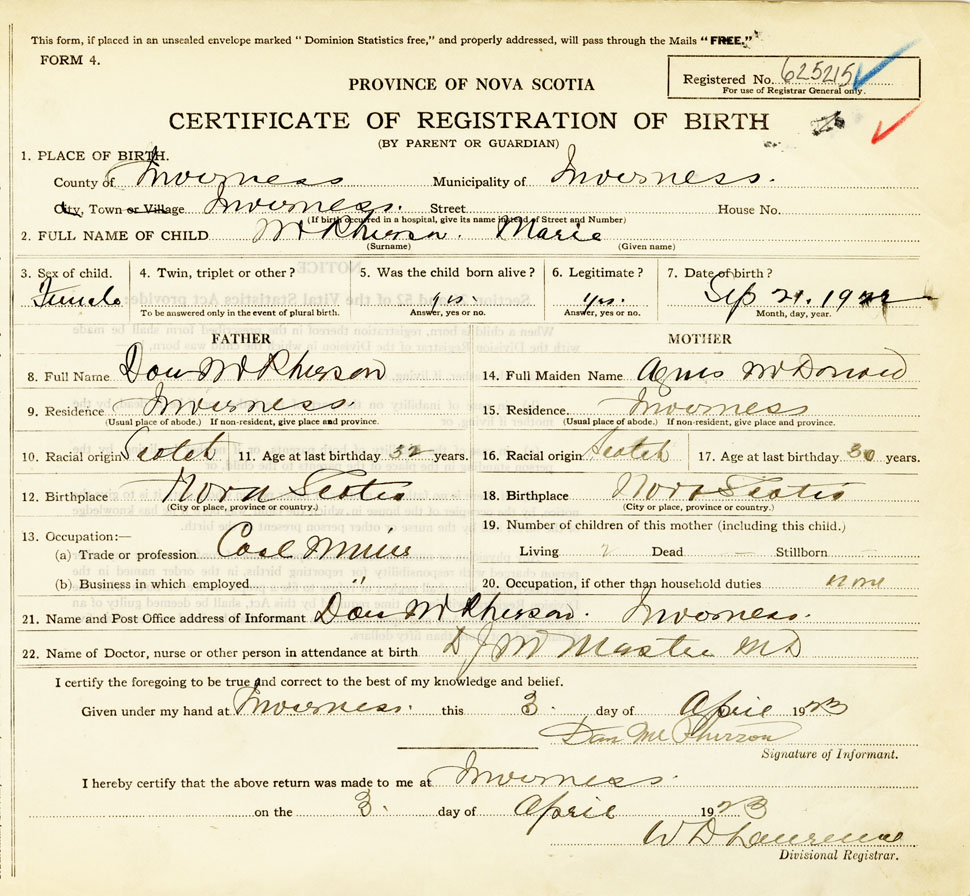 This form, if placed in an unsealed envelope marked "Dominion Statistics free," and properly addressed, will pass through the Mails "FREE."
FORM 4.
Registered No. 625215
For use of Registrar General only.
PROVINCE OF NOVA SCOTIA
CERTIFICATE OF REGISTRATION OF BIRTH
(BY PARENT OR GUARDIAN)
1. PLACE OF BIRTH.
County of Inverness Municipality of Inverness.
City, Town or Village Inverness. Street House No.
(If birth occurred in a hospital, give its name instead of Street and Number)
2. FULL NAME OF CHILD McPherson. Marie
(Surname) (Given name)
3. Sex of child. 4. Twin, triplet or other? 5. Was the child born alive? 6. Legitimate? 7. Date of birth?
Female yes. yes. Sep 21. 1922
To be answered only in the event of plural birth. Answer, yes or no. Answer, yes or no. Month, day, year.
FATHER MOTHER
8. Full Name Dan McPherson 14. Full Maiden Name Agnes McDonald
9. Residence Inverness. 15. Residence. Inverness
(Usual place of abode.) If non-resident, give place and province. (Usual place of abode.) If non-resident, give place and province.
10. Racial origin Scotch 11. Age at last birthday 32 years. 16. Racial origin Scotch 17. Age at last birthday 30 years.
12. Birthplace Nova Scotia 18. Birthplace Nova Scotia
(City or place, province or country.) (City or place, province or country.)
19. Number of children of this mother (including this child.)
13. Occupation:—
(a) Trade or profession Coal Miner Living Dead — Stillborn —
(b) Business in which employed " 20. Occupation, if other than household duties none
21. Name and Post Office address of Informant Dan McPherson Inverness.
22. Name of Doctor, nurse or other person in attendance at birth D J McMaster MD
I certify the foregoing to be true and correct to the best of my knowledge and belief.
Given under my hand at Inverness. this 3. day of April 1923
Dan McPherson
Signature of Informant.
I hereby certify that the above return was made to me at Inverness.
on the 3. day of April 1923
W D Laurence
Divisional Registrar.